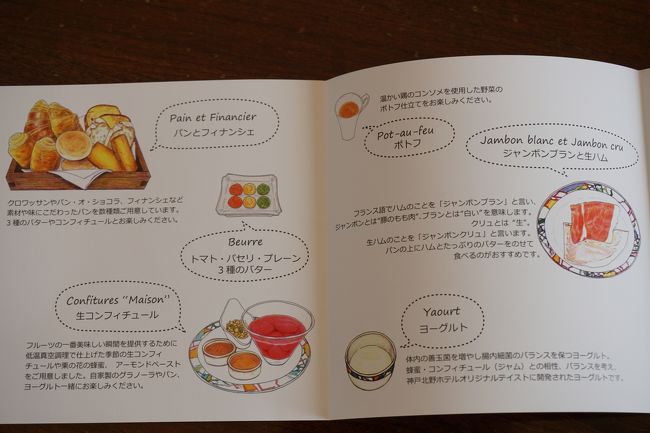 Pain et Financier
パンとフィナンシェ
クロワッサンやパン・オ・ショコラ、フィナンシェなど
素材や味にこだわったパンを数種類ご用意しています。
3種のバターやコンフィチュールとお楽しみください。
Beurre
トマト・パセリ・プレーン
3種のバター
Confitures “Maison”
生コンフィチュール
フルーツの一番美味しい瞬間を提供するために
低温真空調理で仕上げた季節の生コンフィ
チュールや栗の花の蜂蜜、アーモンドペースト
をご用意しました。自家製のグラノーラやパン、
ヨーグルト一緒にお楽しみください。
温かい鶏のコンソメを使用した野菜の
ポトフ仕立てをお楽しみください。
Pot-au-feu
ポトフ
Jambon blanc et Jambon cru
ジャンボンブランと生ハム
フランス語でハムのことを「ジャンボンブラン」と言い、
ジャンボンとは“豚のもも肉”、ブランとは“白い”を意味します。
クリュとは “生”。
生ハムのことを「ジャンボンクリュ」と言います。
パンの上にハムとたっぷりのバターをのせて
食べるのがおすすめです。
Yaourt
ヨーグルト
体内の善玉菌を増やし腸内細菌のバランスを保つヨーグルト。
蜂蜜・コンフィチュール（ジャム）との相性、バランスを考え、
神戸北野ホテルオリジナルテイストに開発されたヨーグルトです。